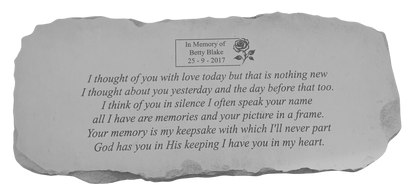 In Memory of
Betty Blake
25 - 9 - 2017
I thought of you with love today but that is nothing new
I thought about you yesterday and the day before that too.
I think of you in silence I often speak your name
all I have are memories and your picture in a frame.
Your memory is my keepsake with which I'll never part
God has you in His keeping I have you in my heart.